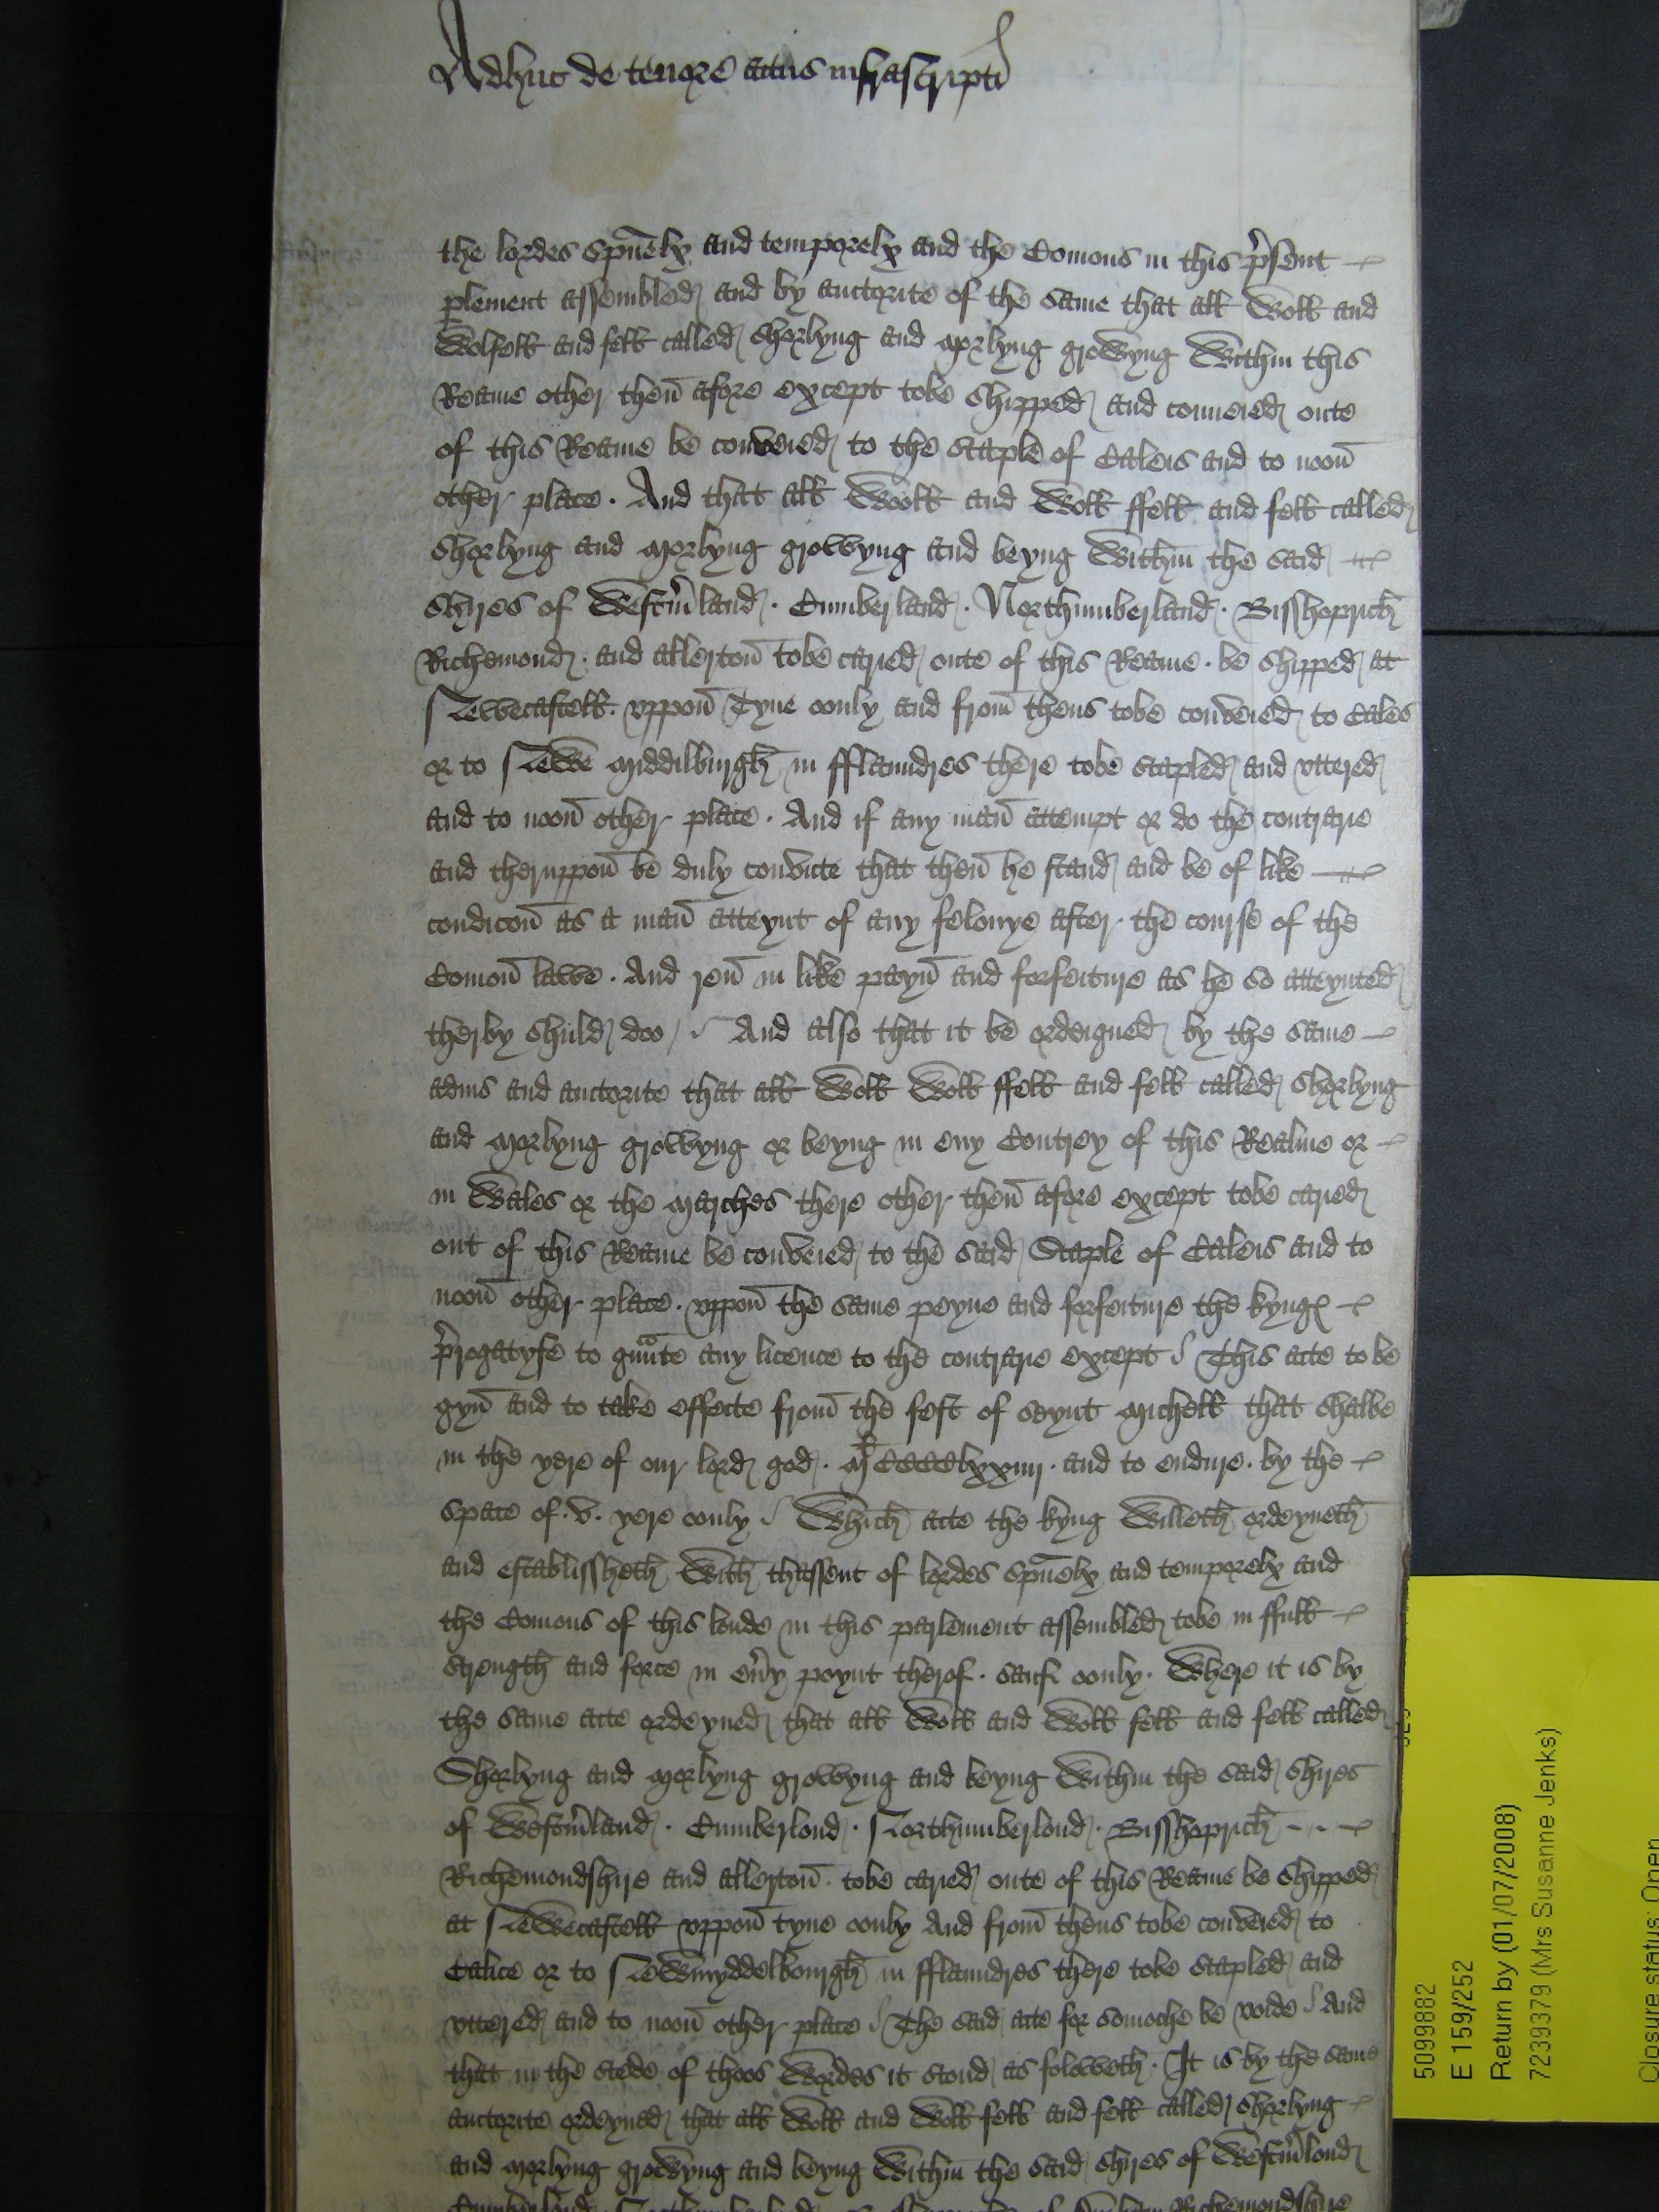 Adhuc de tenore actus infrascripti
the lordes spũelx and temporelx and the Comons in this p̃sent
plement assembled and by auctorite of the same that all Woll and
Wolfell and fell called Shorlyng and morlyng growyng Within this
Reame other then afore except tobe shipped and conueied oute
of this Reame be conveied to the staple of Caleis and to noon
other place . And that all Wooll and Woll ffell and fell called
shorlyng and morlyng growyng and beyng Within the said
shires of Westm̃land . Cumberland . Northumberland . Bisshoprich
Richemond . and allerton tobe caried oute of this Reame . be shipped at
Newecastell vppon Tyne oonly and from thens tobe conveied to Cales
or to Newe middilburgh in fflaundres there tobe stapled and vttered
and to noon other place . And if any man attempt or do the contrarie
and theruppon be duly convicte that then he stand and be of like
condicon as a man atteynt of any felonye after the course of the
Comon lawe . And ren in like payn and forfeiture as he so atteynted
therby shuld doo / And also that it be ordeigned by the same
aduis and auctorite that all Woll Woll ffell and fell called shorlyng
and morlyng growyng or beyng in eny Contrey of this Realme or
in Wales or the marches there other then afore except tobe caried
out of this Reame be conveied to the said Staple of Caleis and to
noon other place . vppon the same peyne and forfeiture the kynges
p̃rogatyfe to gũnte any licence to the contrarie except / This acte to be
gyn and to take effecte from the fest of seynt michell that shalbe
in the yere of our lord god . Ml CCCClxxiiij . and to endure . by the
space of . v . yere oonly / Which acte the kyng Willeth ordeyneth
and establissheth With thassent of lordes spũelx and temporelx and
the Comons of this londe in this parlement assembled tobe in ffull
strength and force in eũy poynt therof . sauf oonly . Where it is by
the same acte ordeyned that all Woll and Woll fell and fell called
Shorlyng and morlyng growyng and beyng Within the said shires
of Westm̃land . Cumberlond . Northumberlond . Bisshoprich
Richemondshire and allerton . tobe caried oute of this Reame be shipped
at Newecastell vppon tyne oonly And from thens tobe conveied to
Calice or to Newmyddelbourgh in fflaundres there tobe stapled and
vttered and to noon other place / The said acte for somoche be voide / And
that in the stede of thoos Wordes it stond as foloweth . It is by the same
auctorite ordeyned that all Woll and Woll fell and fell called shorlyng
and morlyng growyng and beyng Within the said shires of Westm̃lond
Richemondshire
5099882
E 159/252
Return by (01/07/2008)
7239379 (Mrs Susanne Jenks)
Closure status: Open